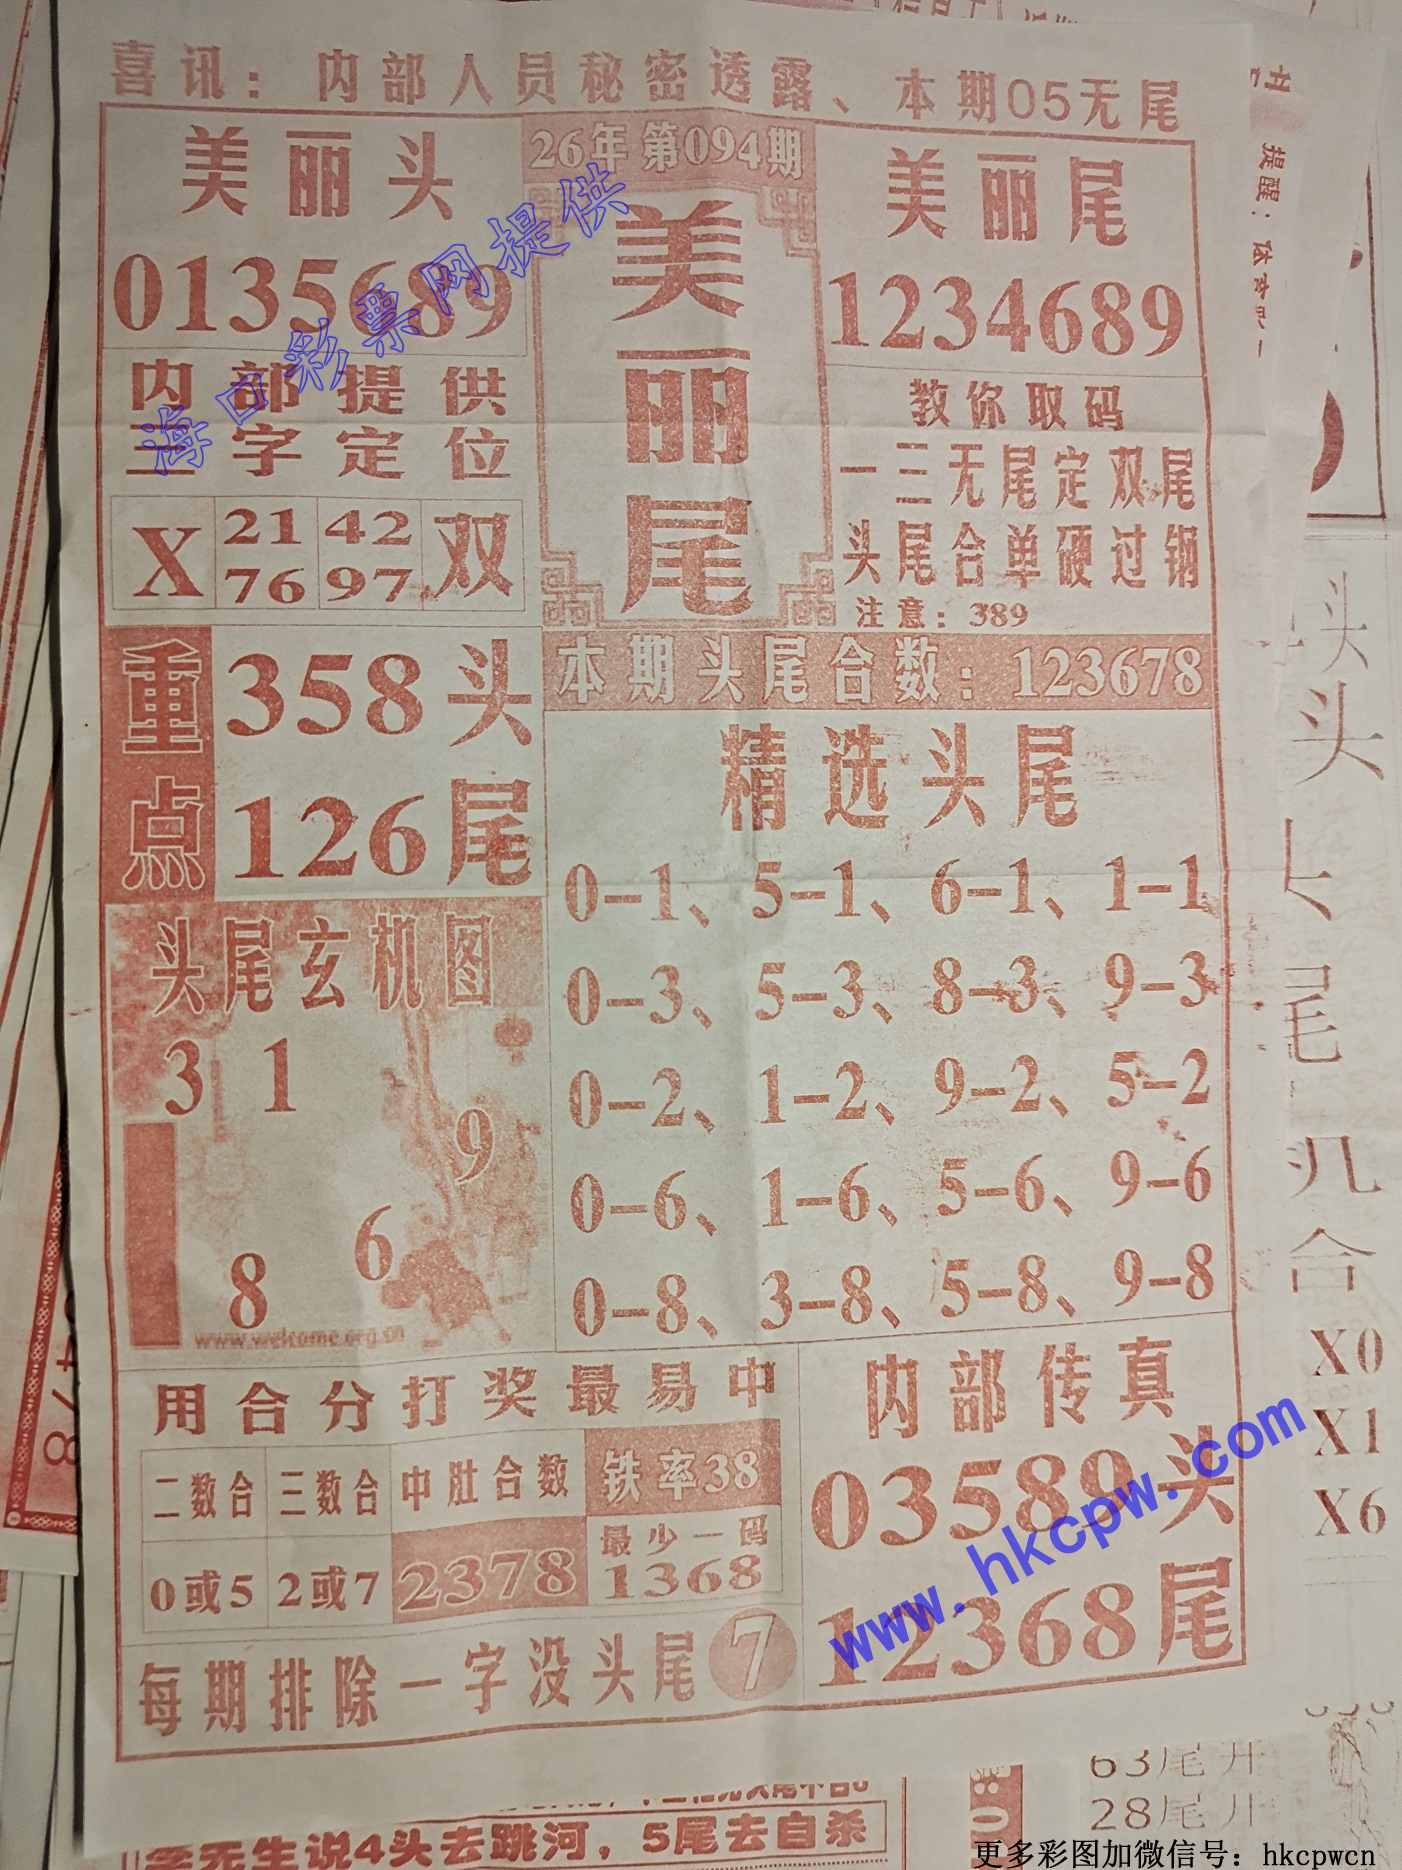 喜讯：内部人员秘密透露、本期05无尾
美丽头
0135689
内部提供
三字定位
X 21 42 双
76 97
26年第094期
美丽尾
美丽尾
1234689
教你取码
一三无尾定双尾
头尾合单硬过钢
注意：389
重点
358头
126尾
本期头尾合数：123678
精选头尾
0-1、5-1、6-1、1-1
0-3、5-3、8-3、9-3
0-2、1-2、9-2、5-2
0-6、1-6、5-6、9-6
0-8、3-8、5-8、9-8
头尾玄机图
3 1
9
6
8
www.welcome.org.cn
用合分打奖最易中
二数合 三数合 中肚合数 铁率38
0或5 2或7 2378 最少一码
1368
每期排除一字没头尾 7
内部传真
03589头
12368尾
海口彩票网提供
www.hkcpw.com
提醒：
头
头
尾
合
X0
X1
X6
63尾开
28尾开
生说4头去跳河，5尾去自杀
更多彩图加微信号：hkcpwcn